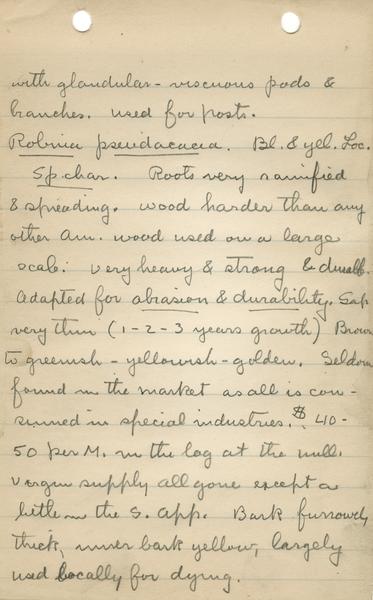 with glandular - viscuous pods &
branches. used for posts.
Robinia pseudacacia. Bl. & yel. Loc.
Sp. char. Roots very ramified
& spreading. wood harder than any
other Am. wood used on a large
scale. very heavy & strong & durabl.
Adapted for abrasion & durability. Sap
very thin (1-2-3 years growth) Brown
to greenish - yellowish - golden. Seldom
found in the market as all is con-
sumed in special industries. $40-
50 per M. in the log at the mill.
Vergin supply all gone except a
little in the S. App. Bark furrowed,
thick, inner bark yellow, largely
used locally for dying.